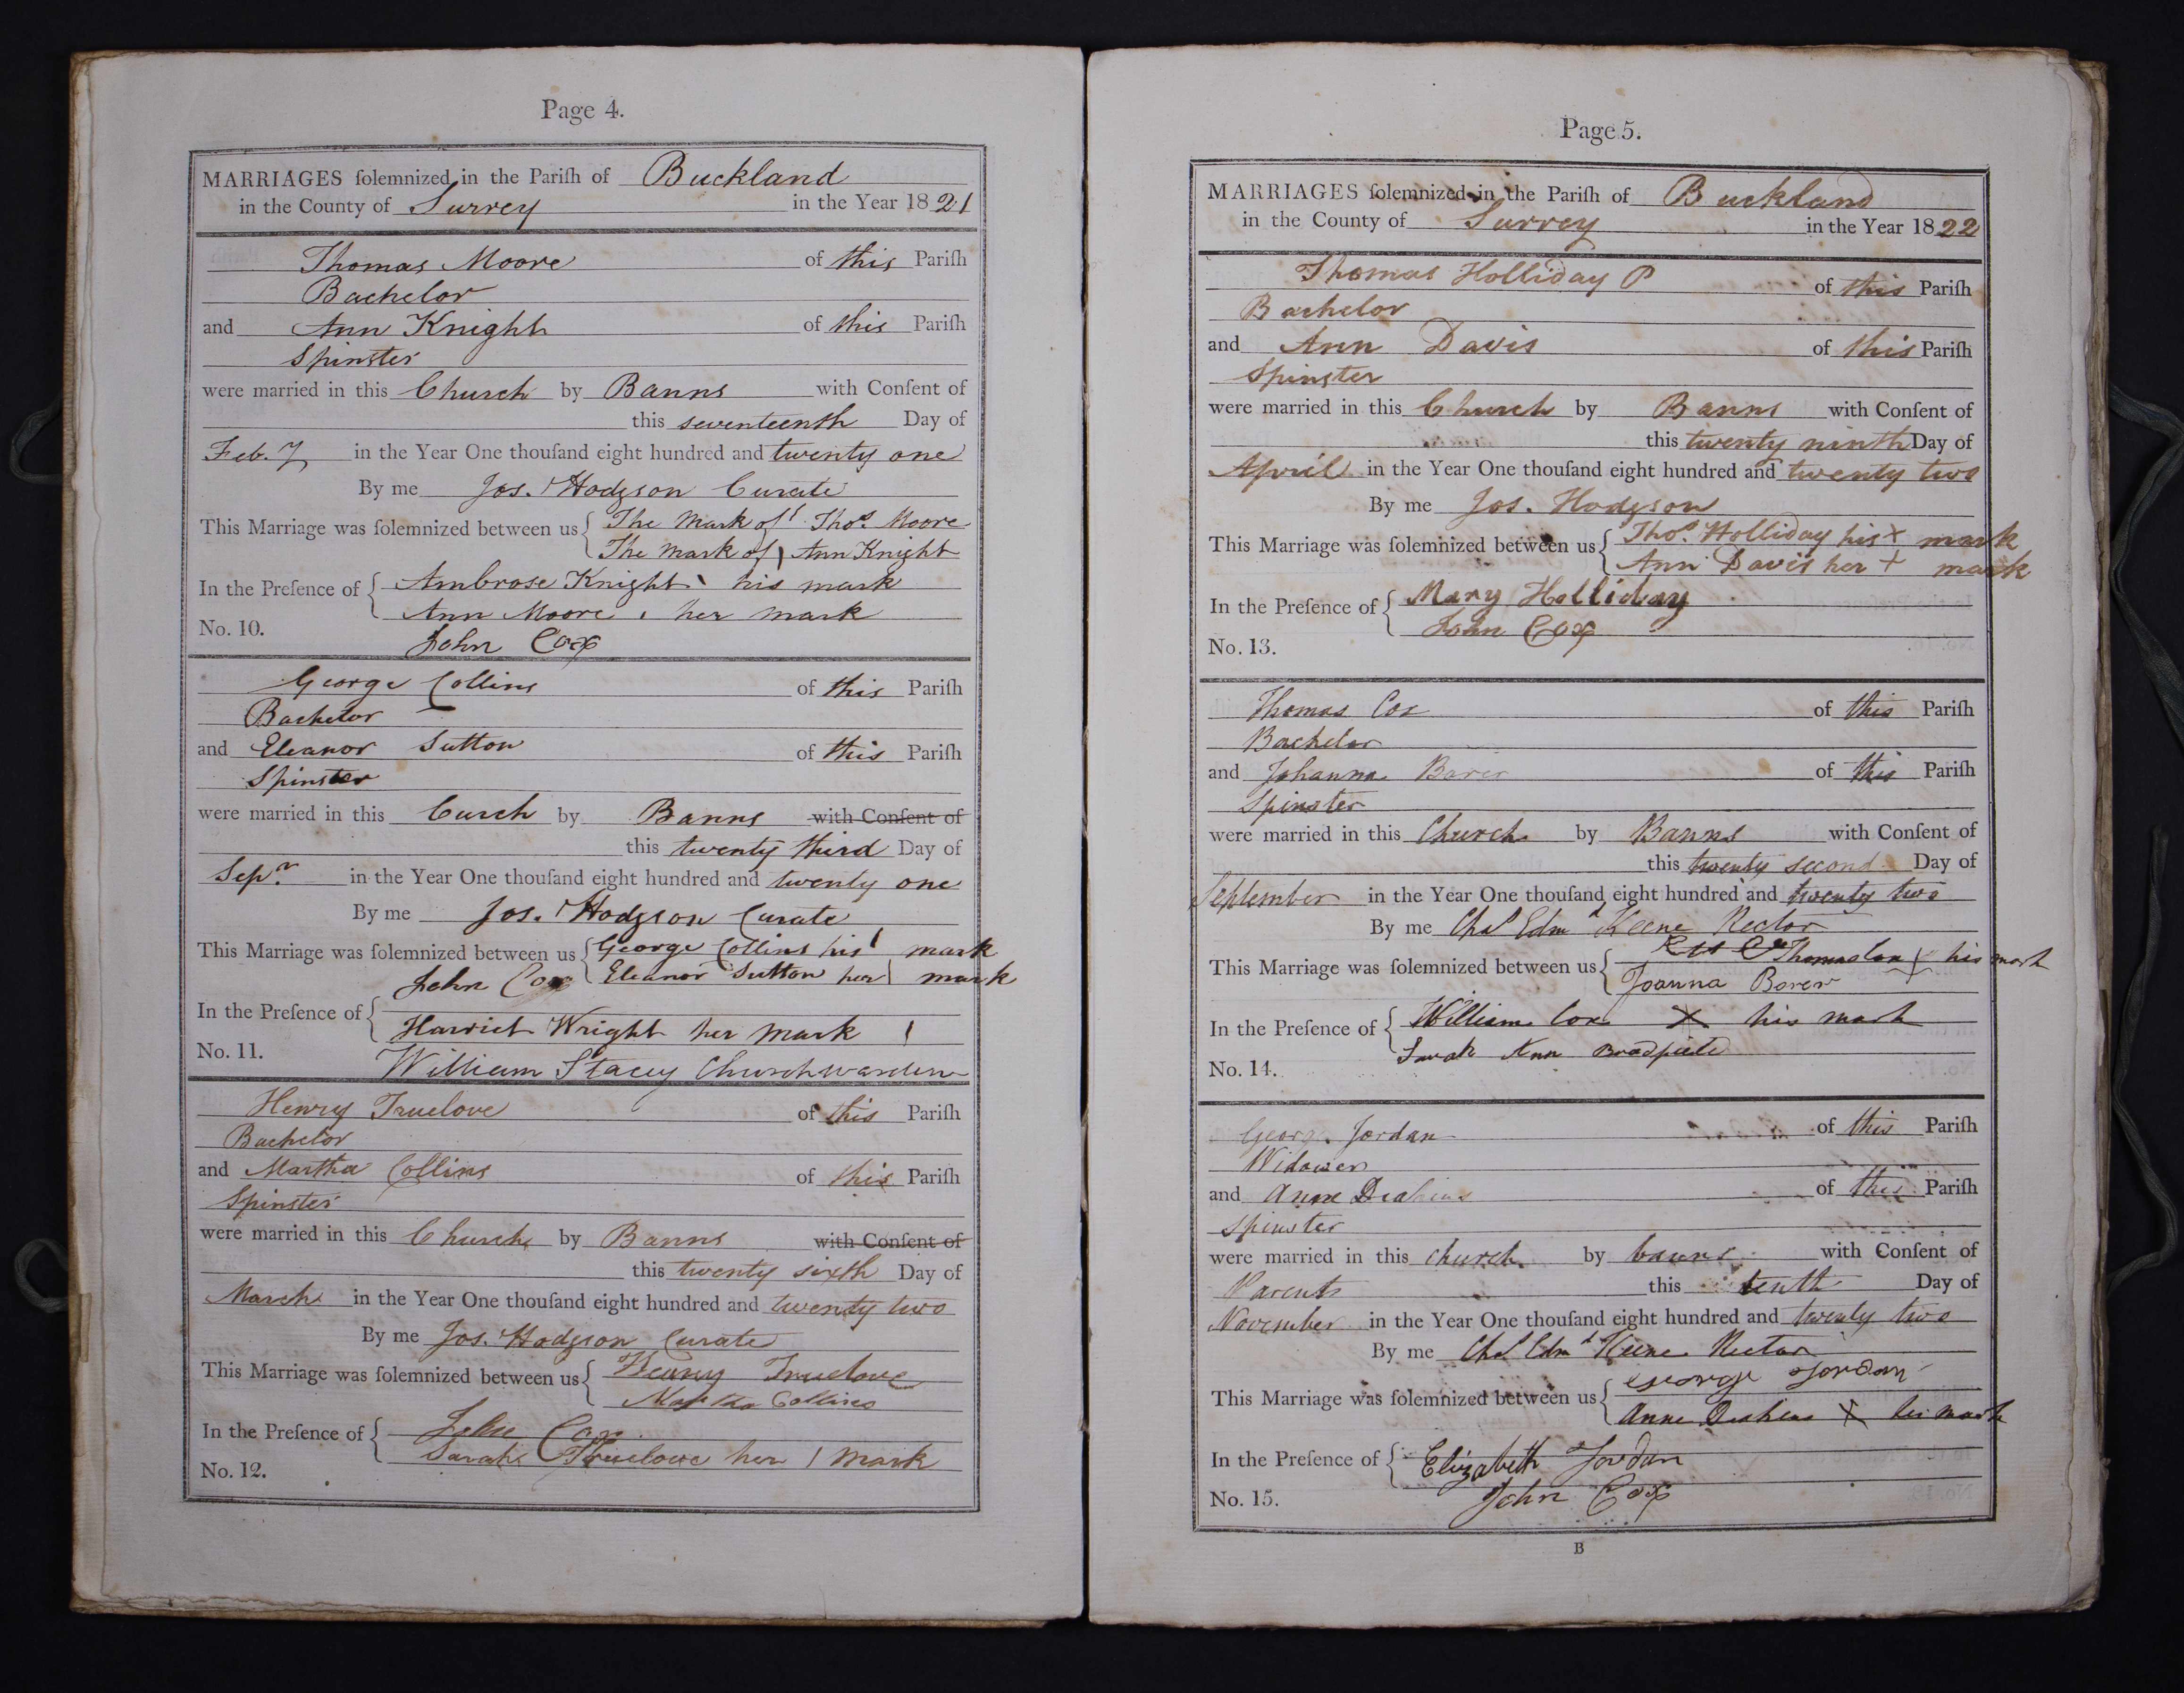 Page 4.
MARRIAGES ſolemnized in the Pariſh of Buckland
in the County of Surrey in the Year 1821
Thomas Moore of this Pariſh
Bachelor
and Ann Knight of this Pariſh
Spinster
were married in this Church by Banns with Conſent of
this seventeenth Day of
Feb. y in the Year One thouſand eight hundred and twenty one
By me Jos. Hodgson Curate
This Marriage was ſolemnized between us { The Mark of Thos. Moore
The mark of Ann Knight
In the Preſence of { Ambrose Knight his mark
Ann Moore her mark
No. 10.
John Cox
George Collins of this Pariſh
Bachelor
and Eleanor Sutton of this Pariſh
Spinster
were married in this Curch by Banns with Conſent of
this twenty third Day of
Sepr. in the Year One thouſand eight hundred and twenty one
By me Jos. Hodgson Curate
This Marriage was ſolemnized between us { George Collins his mark
John Cox Eleanor Sutton her mark
In the Preſence of {
Harriet Wright her mark
No. 11.
William Stacey Churchwarden
Henry Truelove of this Pariſh
Bachelor
and Martha Collins of this Pariſh
Spinster
were married in this Church by Banns with Conſent of
this twenty sixth Day of
March in the Year One thouſand eight hundred and twenty two
By me Jos. Hodgson Curate
This Marriage was ſolemnized between us { Henry Truelove
Martha Collins
In the Preſence of { John Cox
Sarah Truelove her mark
No. 12.
Page 5.
MARRIAGES ſolemnized in the Pariſh of Buckland
in the County of Surrey in the Year 1822
Thomas Holliday P of this Pariſh
Bachelor
and Ann Davis of this Pariſh
Spinster
were married in this Church by Banns with Conſent of
this twenty ninth Day of
April in the Year One thouſand eight hundred and twenty two
By me Jos. Hodgson
This Marriage was ſolemnized between us { Thos. Holliday his + mark
Ann Davis her + mark
In the Preſence of { Mary Holliday
John Cox
No. 13.
Thomas Cox of this Pariſh
Bachelor
and Johanna Borer of this Pariſh
Spinster
were married in this Church by Banns with Conſent of
this twenty second Day of
September in the Year One thouſand eight hundred and twenty two
By me Chas Edmd Keene Rector
This Marriage was ſolemnized between us { Thomas Cox his mark
Joanna Borer
In the Preſence of { William Cox X his mark
Sarah Ann
No. 14.
George Jordan of this Pariſh
Widower
and Anne of this Pariſh
Spinster
were married in this church by banns with Conſent of
Parents this tenth Day of
November in the Year One thouſand eight hundred and twenty two
By me Chas Edmd Keene Rector
This Marriage was ſolemnized between us { George Jordan
Anne X her mark
In the Preſence of { Elizabeth Jordan
John Cox
No. 15.
B